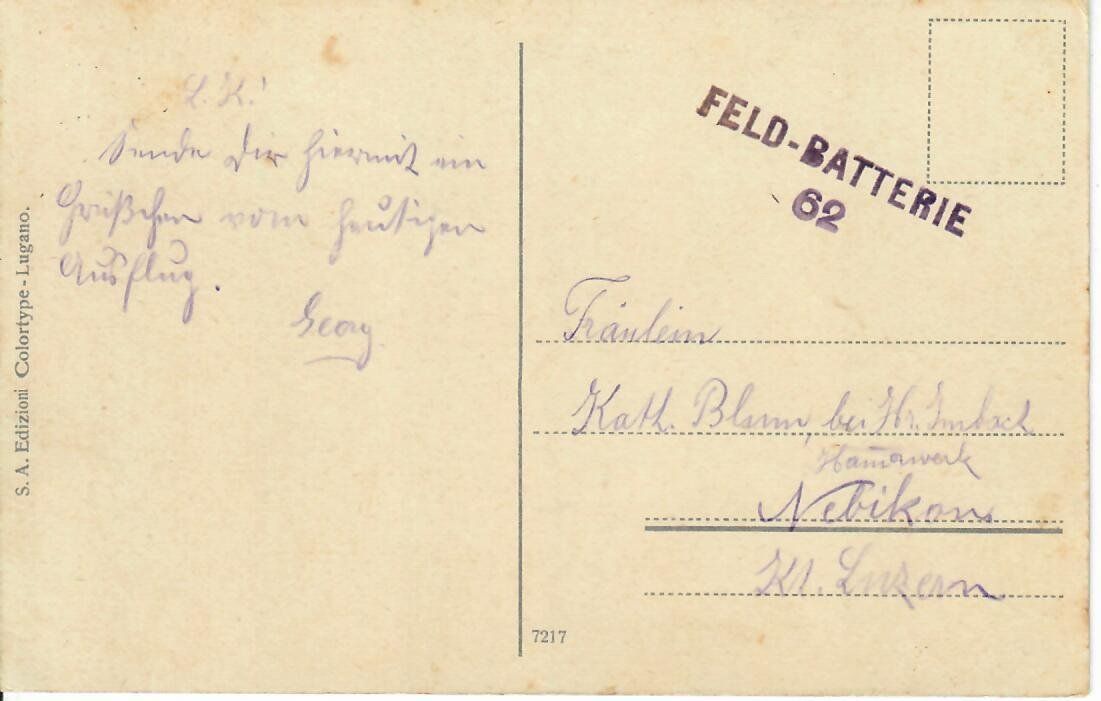 L. K.!
Sende Dir hiermit ein
Grüßchen vom heutigen
Ausflug.
Georg
S. A. Edizioni Colortype - Lugano.
FELD-BATTERIE
62
Fräulein
Kath. Blum, bei Hr. Imbach
Ham̅erwerk
Nebikon
Kt. Luzern
7217